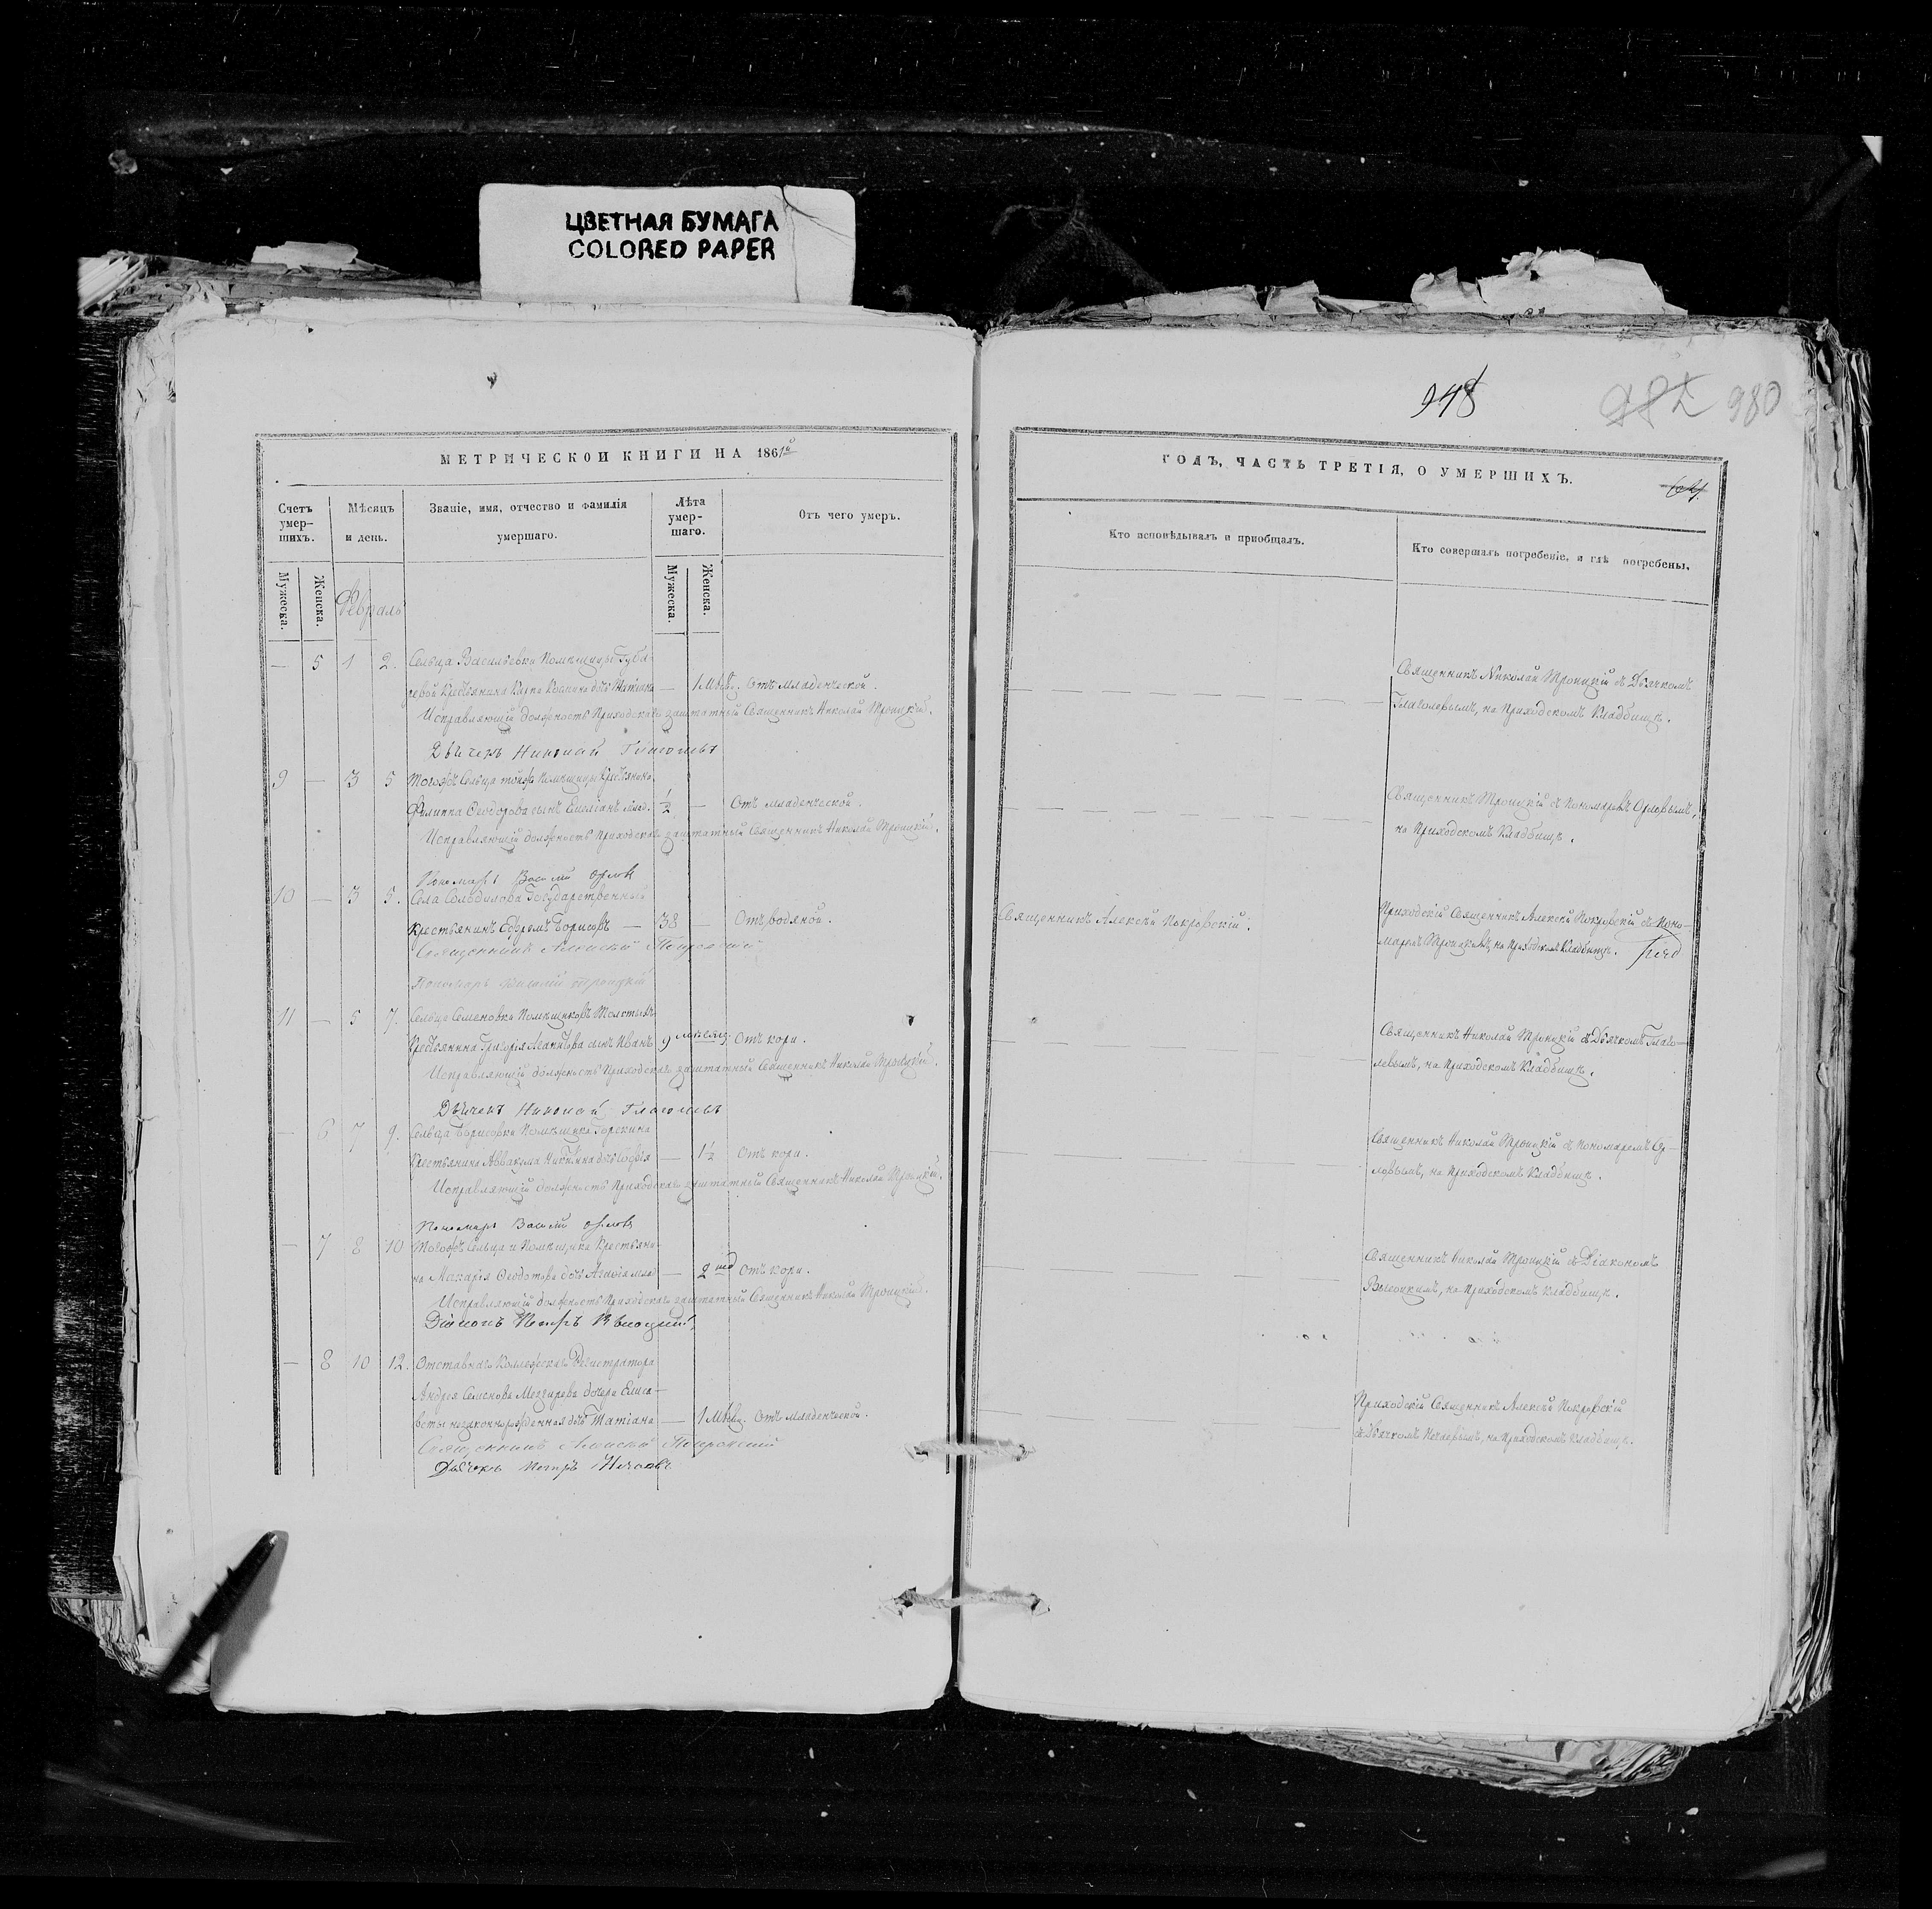 ЦВЕТНАЯ БУМАГА
COLORED PAPER
МЕТРИЧЕСКОЙ КНИГИ НА 1861й
Счетъ умер-шихъ.
Мѣсяцъ и день.
Званіе, имя, отчество и фамилія умершаго.
Лѣта умер-шаго.
Отъ чего умеръ.
Мужеска.
Женска.
Февраль
Мужеска.
Женска.
— 5 1 2. Сельца Васильевки Помѣщицы Губа-
ревой Крестьянина Карпа дочь Татіана — 1 Отъ младенческой.
Исправляющій должность Приходскаго заштатный Священникъ Николай Троицкій.
Дьячекъ Николай Глаголевъ
9 — 3 5 Тогожъ Сельца тойже Помѣщицы Крестьянина
Филиппа Ѳеодорова сынъ Емеліанъ млад. ½ — Отъ младенческой.
Исправляющій должность Приходскаго заштатный Священникъ Николай Троицкій.
Пономарь Василій Орловъ
10 — 3 5. Села Государственный
Крестьянинъ Ефремъ Борисовъ — 38 — Отъ водяной.
Священникъ Алексій Покровскій
Пономарь Троицкій
11 — 5 7. Сельца Семеновки Помѣщиковъ Толстыхъ
Крестьянина Григорія сынъ Иванъ 9 Отъ кори.
Исправляющій должность Приходскаго заштатный Священникъ Николай Троицкій.
Дьячекъ Николай Глаголевъ
— 6 7 9. Сельца Борисовки Помѣщика
Крестьянина Аввакума Никитина дочь Софія — 1½ Отъ кори.
Исправляющій должность Приходскаго заштатный Священникъ Николай Троицкій.
Пономарь Василій Орловъ
— 7 8 10 Тогожъ Сельца и Помѣщика Крестьяни-
на Макарія дочь Агаѳія — 2 Отъ кори.
Исправляющій должность Приходскаго заштатный Священникъ Николай Троицкій.
Діаконъ Петръ
— 8 10 12. Отставнаго Коллежскаго Регистратора
Андрея Семенова дочери Елиса-
веты незаконнорожденная дочь Татіана — 1 Отъ младенческой.
Священникъ Алексій Покровскій
Дьячекъ Петръ
948
980
ГОДЪ, ЧАСТЬ ТРЕТІЯ, О УМЕРШИХЪ.
Кто исповѣдывалъ и пріобщалъ.
Кто совершалъ погребеніе, и гдѣ погребены.
Священникъ Николай Троицкій съ Дьячкомъ
Глаголевымъ, на Приходскомъ Кладбищѣ.
Священникъ Троицкій съ Пономаремъ Орловымъ,
на Приходскомъ Кладбищѣ.
Священникъ Алексѣй Покровскій.
Приходскій Священникъ Алексѣй Покровскій съ Поно-
маремъ Троицкимъ, на Приходскомъ Кладбищѣ.
Священникъ Николай Троицкій съ Дьячкомъ Глаго-
левымъ, на Приходскомъ Кладбищѣ.
Священникъ Николай Троицкій съ Пономаремъ Ор-
ловымъ, на Приходскомъ Кладбищѣ.
Священникъ Николай Троицкій съ Діакономъ
на Приходскомъ Кладбищѣ.
Приходскій Священникъ Алексѣй Покровскій
съ Дьячкомъ на Приходскомъ Кладбищѣ.